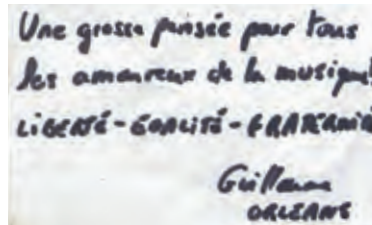 Une grosse pensée pour tous
les amoureux de la musique
LIBERTÉ - EGALITÉ - FRATERNITÉ
Guillaume
ORLEANS